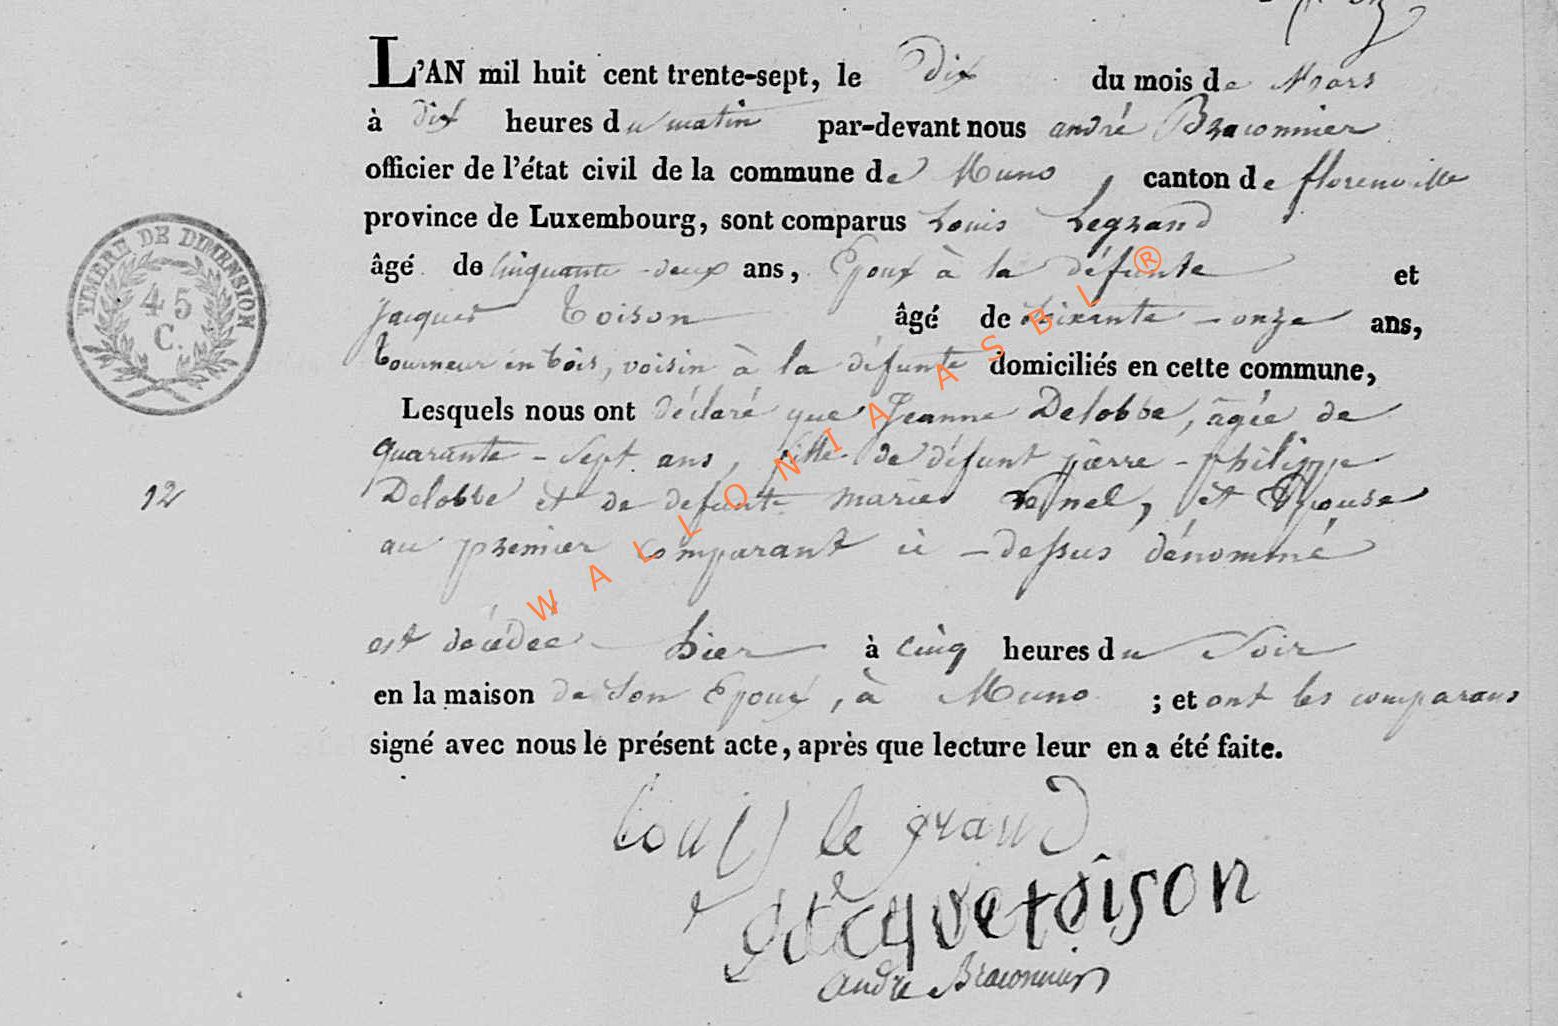 L'AN mil huit cent trente-sept, le dix du mois de Mars
à dix heures du matin par-devant nous andré Braconnier
officier de l'état civil de la commune de Muno, canton de florenville
province de Luxembourg, sont comparus Louis Legrand
âgé de cinquante-deux ans, Epoux à la défunte et
jacques Toison âgé de soixante-onze ans,
tourneur en bois, voisin à la défunte domiciliés en cette commune,
Lesquels nous ont déclaré que Jeanne Delobbe, âgée de
quarante-sept ans, fille de défunt pierre-philippe
Delobbe et de defunte marie, et Epouse
au premier comparant ci-dessus dénommé
est décédée hier à cinq heures du Soir
en la maison de Son Epoux, à Muno ; et ont les comparans
signé avec nous le présent acte, après que lecture leur en a été faite.
TIMBRE DE DIMENSION
45
C.
12
louis le grand
Jacque toison
andré Braconnier
WALLONIA ASBL ®